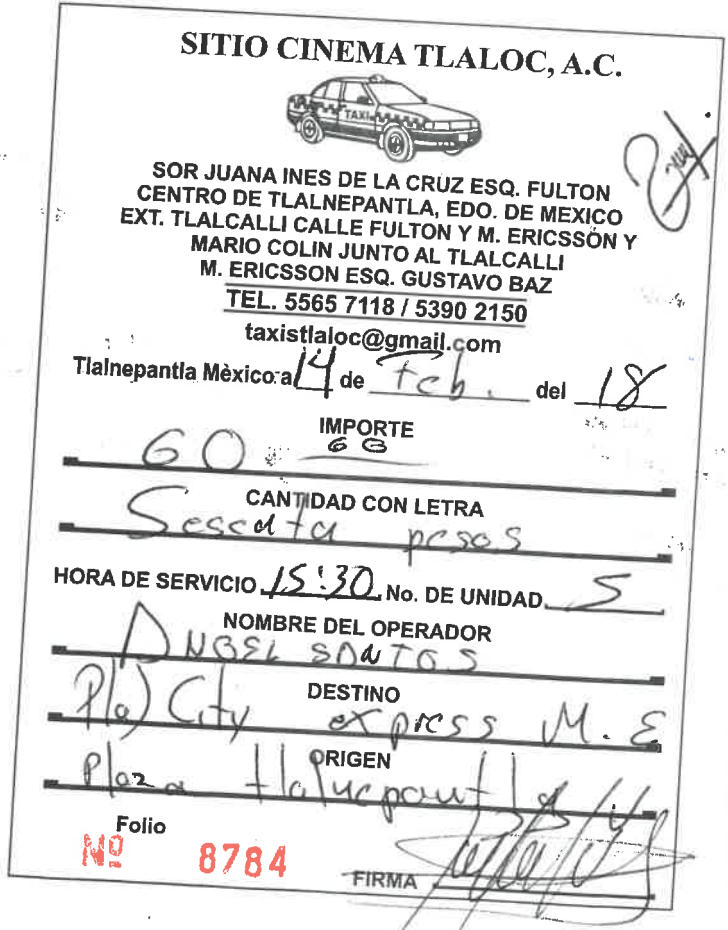 SITIO CINEMA TLALOC, A.C.
TAXI
SOR JUANA INES DE LA CRUZ ESQ. FULTON
CENTRO DE TLALNEPANTLA, EDO. DE MEXICO
EXT. TLALCALLI CALLE FULTON Y M. ERICSSON Y
MARIO COLIN JUNTO AL TLALCALLI
M. ERICSSON ESQ. GUSTAVO BAZ
TEL. 5565 7118 / 5390 2150
taxistlaloc@gmail.com
Tlalnepantla Mèxico a 14 de Feb. del 18
IMPORTE
60 00
CANTIDAD CON LETRA
Sesenta pesos
HORA DE SERVICIO 15:30 No. DE UNIDAD 5
NOMBRE DEL OPERADOR
ANGEL SANTOS
DESTINO
City express M. E
ORIGEN
Plaza tlalnepantla
Folio
Nº 8784
FIRMA